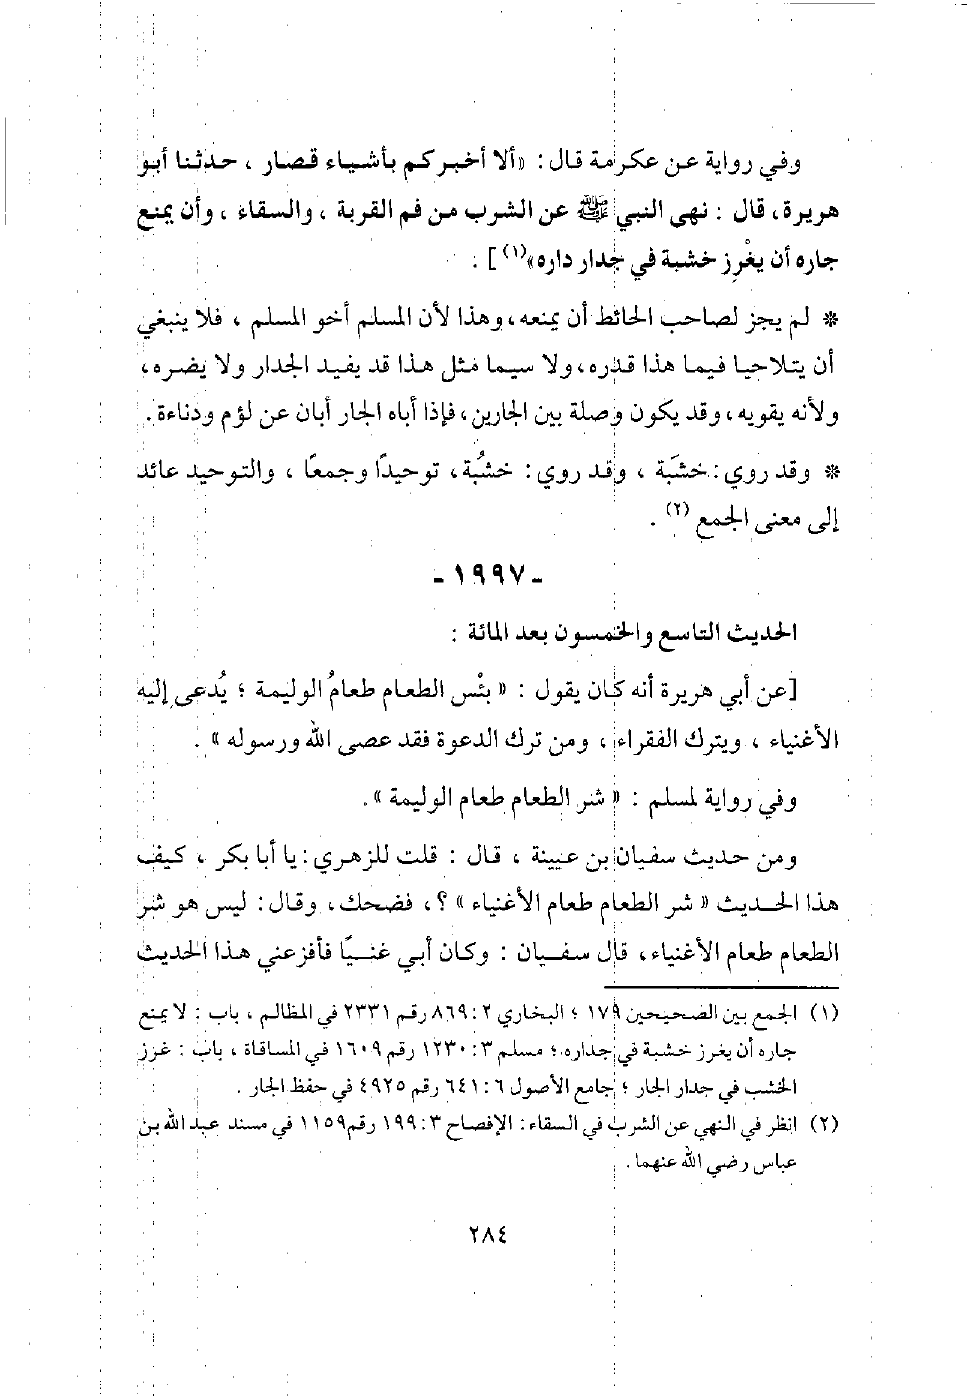 وفي رواية عن عكرمة قال : «ألا أخبركم بأشياء قصار ، حدثنا أبو
هريرة ، قال : نهى النبي ﷺ عن الشرب من فم القربة ، والسقاء ، وأن يمنع
جاره أن يغْرِز خشبة في جدار داره»(١) ] .
* لم يجز لصاحب الحائط أن يمنعه ، وهذا لأن المسلم أخو المسلم ، فلا ينبغي
أن يتلاحيا فيما هذا قدره ، ولا سيما مثل هذا قد يفيد الجدار ولا يضره ،
ولأنه يقويه ، وقد يكون وصلة بين الجارين ، فإذا أباه الجار أبان عن لؤم ودناءة .
* وقد روي : خشَبَة ، وقد روي : خشُبَة ، توحيدًا وجمعًا ، والتوحيد عائد
إلى معنى الجمع (٢) .
- ١٩٩٧ -
الحديث التاسع والخمسون بعد المائة :
[عن أبي هريرة أنه كان يقول : « بئْس الطعام طعامُ الوليمة ؛ يُدعى إليه
الأغنياء ، ويترك الفقراء ، ومن ترك الدعوة فقد عصى الله ورسوله » .
وفي رواية لمسلم : « شر الطعام طعام الوليمة » .
ومن حديث سفيان بن عيينة ، قال : قلت للزهري : يا أبا بكر ، كيف
هذا الحديث « شر الطعام طعام الأغنياء » ؟ ، فضحك ، وقال : ليس هو شر
الطعام طعام الأغنياء ، قال سفيان : وكان أبي غنيًا فأفزعني هذا الحديث
(١) الجمع بين الصحيحين ١٧٩ ؛ البخاري ٢ : ٨٦٩ رقم ٢٣٣١ في المظالم ، باب : لا يمنع
جاره أن يغرز خشبة في جداره ؛ مسلم ٣ : ١٢٣٠ رقم ١٦٠٩ في المساقاة ، باب : غرز
الخشب في جدار الجار ؛ جامع الأصول ٦ : ٦٤١ رقم ٤٩٢٥ في حفظ الجار .
(٢) انظر في النهي عن الشرب في السقاء : الإفصاح ٣ : ١٩٩ رقم ١١٥٩ في مسند عبد الله بن
عباس رضي الله عنهما .
٢٨٤